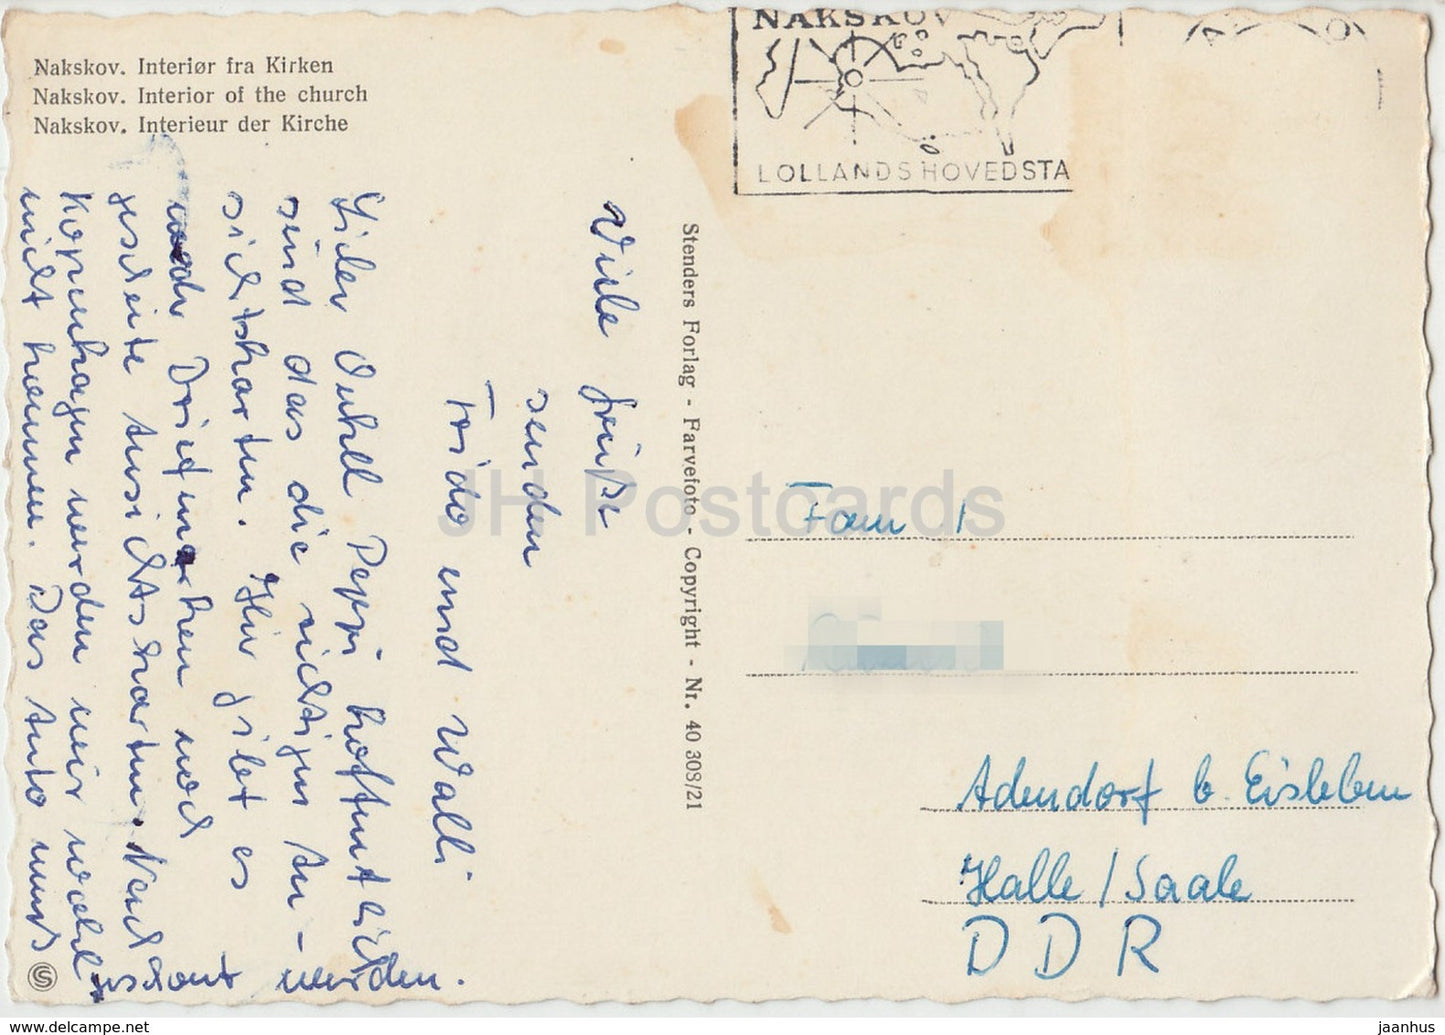 Nakskov. Interiør fra Kirken
Nakskov. Interior of the church
Nakskov. Interieur der Kirche
NAKSKOV
LOLLANDS HOVEDSTA
Lieber Onkel Peppi hoffentlich
sind das die richtigen An-
sichtskarten. Hier gibt es
nach Briefmarken noch
gescheite Ansichtskarten. Nach
Kopenhagen werden wir wohl
nicht kommen. Das Auto muß
geschont werden.
Viele Grüße
senden
Frido und Walli
Stenders Forlag - Farvefoto - Copyright - Nr. 40 308/21
Fam
Adendorf b. Eisleben
Halle / Saale
DDR
JH Postcards
jaanhus on www.delcampe.net